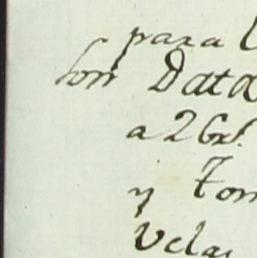 para
son Data
a 26rs.
y Tom
Velas